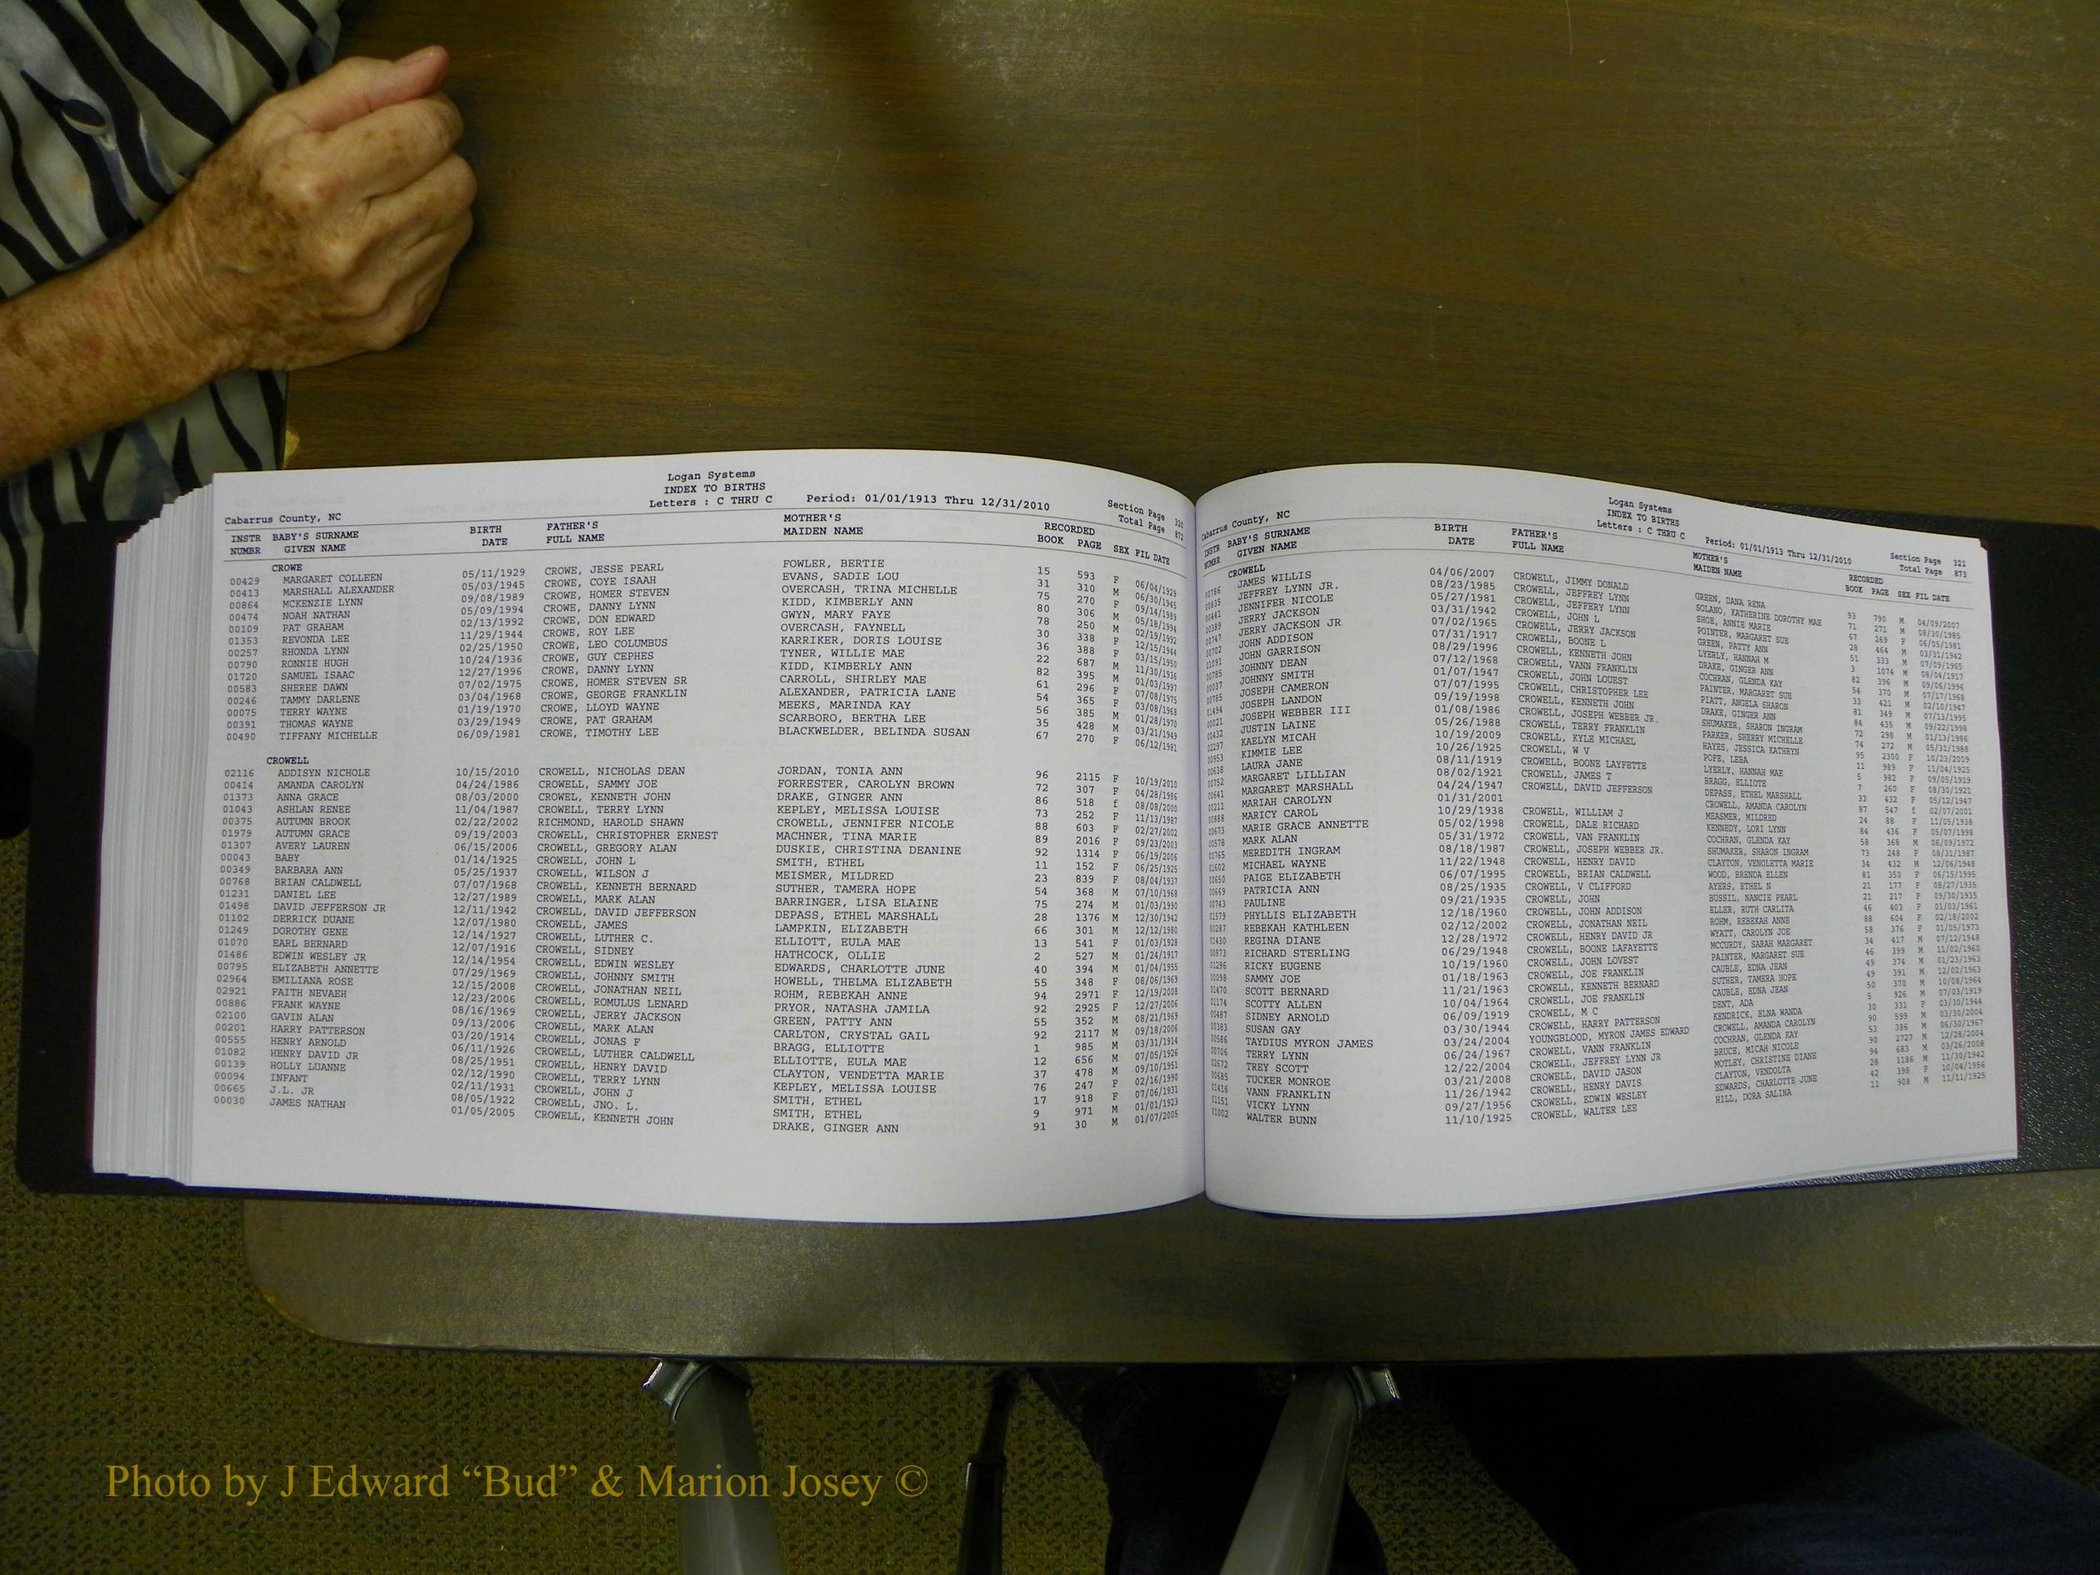 Logan Systems
INDEX TO BIRTHS
Letters : C THRU C Period: 01/01/1913 Thru 12/31/2010
Cabarrus County, NC
Section Page 320
Total Page 872
INSTR BABY'S SURNAME BIRTH FATHER'S MOTHER'S RECORDED
NUMBR GIVEN NAME DATE FULL NAME MAIDEN NAME BOOK PAGE SEX FIL DATE
CROWE
00429 MARGARET COLLEEN 05/11/1929 CROWE, JESSE PEARL FOWLER, BERTIE 15 593 F 06/04/1929
00413 MARSHALL ALEXANDER 05/03/1945 CROWE, COYE ISAAH EVANS, SADIE LOU 31 310 M 06/30/1945
00864 MCKENZIE LYNN 09/08/1989 CROWE, HOMER STEVEN OVERCASH, TRINA MICHELLE 75 270 F 09/14/1989
00474 NOAH NATHAN 05/09/1994 CROWE, DANNY LYNN KIDD, KIMBERLY ANN 80 306 M 05/18/1994
00109 PAT GRAHAM 02/13/1992 CROWE, DON EDWARD GWYN, MARY FAYE 78 250 M 02/19/1992
01353 REVONDA LEE 11/29/1944 CROWE, ROY LEE OVERCASH, FAYNELL 30 338 F 12/15/1944
00257 RHONDA LYNN 02/25/1950 CROWE, LEO COLUMBUS KARRIKER, DORIS LOUISE 36 388 F 03/15/1950
00790 RONNIE HUGH 10/24/1936 CROWE, GUY CEPHES TYNER, WILLIE MAE 22 687 M 11/30/1936
01720 SAMUEL ISAAC 12/27/1996 CROWE, DANNY LYNN KIDD, KIMBERLY ANN 82 395 M 01/03/1997
00583 SHEREE DAWN 07/02/1975 CROWE, HOMER STEVEN SR CARROLL, SHIRLEY MAE 61 296 F 07/08/1975
00246 TAMMY DARLENE 03/04/1968 CROWE, GEORGE FRANKLIN ALEXANDER, PATRICIA LANE 54 365 F 03/08/1968
00075 TERRY WAYNE 01/19/1970 CROWE, LLOYD WAYNE MEEKS, MARINDA KAY 56 385 M 01/28/1970
00391 THOMAS WAYNE 03/29/1949 CROWE, PAT GRAHAM SCARBORO, BERTHA LEE 35 428 M 03/21/1949
00490 TIFFANY MICHELLE 06/09/1981 CROWE, TIMOTHY LEE BLACKWELDER, BELINDA SUSAN 67 270 F 06/12/1981
CROWELL
02116 ADDISYN NICHOLE 10/15/2010 CROWELL, NICHOLAS DEAN JORDAN, TONIA ANN 96 2115 F 10/19/2010
00414 AMANDA CAROLYN 04/24/1986 CROWELL, SAMMY JOE FORRESTER, CAROLYN BROWN 72 307 F 04/28/1986
01373 ANNA GRACE 08/03/2000 CROWEL, KENNETH JOHN DRAKE, GINGER ANN 86 518 f 08/08/2000
01043 ASHLAN RENEE 11/04/1987 CROWELL, TERRY LYNN KEPLEY, MELISSA LOUISE 73 252 F 11/13/1987
00375 AUTUMN BROOK 02/22/2002 RICHMOND, HAROLD SHAWN CROWELL, JENNIFER NICOLE 88 603 F 02/27/2002
01979 AUTUMN GRACE 09/19/2003 CROWELL, CHRISTOPHER ERNEST MACHNER, TINA MARIE 89 2016 F 09/23/2003
01307 AVERY LAUREN 06/15/2006 CROWELL, GREGORY ALAN DUSKIE, CHRISTINA DEANINE 92 1314 F 06/19/2006
00043 BABY 01/14/1925 CROWELL, JOHN L SMITH, ETHEL 11 152 F 06/25/1925
00349 BARBARA ANN 05/25/1937 CROWELL, WILSON J MEISMER, MILDRED 23 839 F 08/04/1937
00768 BRIAN CALDWELL 07/07/1968 CROWELL, KENNETH BERNARD SUTHER, TAMERA HOPE 54 368 M 07/10/1968
01231 DANIEL LEE 12/27/1989 CROWELL, MARK ALAN BARRINGER, LISA ELAINE 75 274 M 01/03/1990
01498 DAVID JEFFERSON JR 12/11/1942 CROWELL, DAVID JEFFERSON DEPASS, ETHEL MARSHALL 28 1376 M 12/30/1942
01102 DERRICK DUANE 12/07/1980 CROWELL, JAMES LAMPKIN, ELIZABETH 66 301 M 12/12/1980
01249 DOROTHY GENE 12/14/1927 CROWELL, LUTHER C. ELLIOTT, EULA MAE 13 541 F 01/03/1928
01070 EARL BERNARD 12/07/1916 CROWELL, SIDNEY HATHCOCK, OLLIE 2 527 M 01/24/1917
01486 EDWIN WESLEY JR 12/14/1954 CROWELL, EDWIN WESLEY EDWARDS, CHARLOTTE JUNE 40 394 M 01/04/1955
00795 ELIZABETH ANNETTE 07/29/1969 CROWELL, JOHNNY SMITH HOWELL, THELMA ELIZABETH 55 348 F 08/06/1969
02964 EMILIANA ROSE 12/15/2008 CROWELL, JONATHAN NEIL ROHM, REBEKAH ANNE 94 2971 F 12/19/2008
02921 FAITH NEVAEH 12/23/2006 CROWELL, ROMULUS LENARD PRYOR, NATASHA JAMILA 92 2925 F 12/27/2006
00886 FRANK WAYNE 08/16/1969 CROWELL, JERRY JACKSON GREEN, PATTY ANN 55 352 M 08/21/1969
02100 GAVIN ALAN 09/13/2006 CROWELL, MARK ALAN CARLTON, CRYSTAL GAIL 92 2117 M 09/18/2006
00201 HARRY PATTERSON 03/20/1914 CROWELL, JONAS F BRAGG, ELLIOTTE 1 985 M 03/31/1914
00555 HENRY ARNOLD 06/11/1926 CROWELL, LUTHER CALDWELL ELLIOTTE, EULA MAE 12 656 M 07/05/1926
01082 HENRY DAVID JR 08/25/1951 CROWELL, HENRY DAVID CLAYTON, VENDETTA MARIE 37 478 M 09/10/1951
00139 HOLLY LUANNE 02/12/1990 CROWELL, TERRY LYNN KEPLEY, MELISSA LOUISE 76 247 F 02/16/1990
00094 INFANT 02/11/1931 CROWELL, JOHN J SMITH, ETHEL 17 918 F 07/06/1931
00665 J.L. JR 08/05/1922 CROWELL, JNO. L. SMITH, ETHEL 9 971 M 01/01/1923
00030 JAMES NATHAN 01/05/2005 CROWELL, KENNETH JOHN DRAKE, GINGER ANN 91 30 M 01/07/2005
Logan Systems
INDEX TO BIRTHS
Letters : C THRU C Period: 01/01/1913 Thru 12/31/2010
Cabarrus County, NC
Section Page 321
Total Page 873
INSTR BABY'S SURNAME BIRTH FATHER'S MOTHER'S RECORDED
NUMBR GIVEN NAME DATE FULL NAME MAIDEN NAME BOOK PAGE SEX FIL DATE
CROWELL
00786 JAMES WILLIS 04/06/2007 CROWELL, JIMMY DONALD GREEN, DANA RENA 93 790 M 04/09/2007
00835 JEFFREY LYNN JR. 08/23/1985 CROWELL, JEFFREY LYNN SOLANO, KATHERINE DOROTHY MAE 71 271 M 08/30/1985
00441 JENNIFER NICOLE 05/27/1981 CROWELL, JEFFERY LYNN SHOE, ANNIE MARIE 67 269 F 06/05/1981
00389 JERRY JACKSON 03/31/1942 CROWELL, JOHN L POINTER, MARGARET SUE 28 464 M 03/31/1942
00747 JERRY JACKSON JR 07/02/1965 CROWELL, JERRY JACKSON GREEN, PATTY ANN 51 333 M 07/09/1965
00702 JOHN ADDISON 07/31/1917 CROWELL, BOONE L LYERLY, HANNAH M 3 1074 M 08/04/1917
01091 JOHN GARRISON 08/29/1996 CROWELL, KENNETH JOHN DRAKE, GINGER ANN 82 396 M 09/06/1996
00785 JOHNNY DEAN 07/12/1968 CROWELL, VANN FRANKLIN COCHRAN, GLENDA KAY 54 370 M 07/17/1968
00037 JOHNNY SMITH 01/07/1947 CROWELL, JOHN LOUEST PAINTER, MARGARET SUE 33 421 M 02/10/1947
00785 JOSEPH CAMERON 07/07/1995 CROWELL, CHRISTOPHER LEE PIATT, ANGELA SHARON 81 349 M 07/13/1995
01494 JOSEPH LANDON 09/19/1998 CROWELL, KENNETH JOHN DRAKE, GINGER ANN 84 435 M 09/22/1998
00021 JOSEPH WEBBER III 01/08/1986 CROWELL, JOSEPH WEBBER JR. SHUMAKER, SHARON INGRAM 72 298 M 01/13/1986
00432 JUSTIN LAINE 05/26/1988 CROWELL, TERRY FRANKLIN PARKER, SHERRY MICHELLE 74 272 M 05/31/1988
02297 KAELYN MICAH 10/19/2009 CROWELL, KYLE MICHAEL HAYES, JESSICA KATHRYN 95 2300 F 10/23/2009
00953 KIMMIE LEE 10/26/1925 CROWELL, W V POPE, LEBA 11 989 F 11/04/1925
00638 LAURA JANE 08/11/1919 CROWELL, BOONE LAYFETTE LYERLY, HANNAH MAE 5 982 F 09/05/1919
00752 MARGARET LILLIAN 08/02/1921 CROWELL, JAMES T BRAGG, ELLIOTE 7 260 F 08/30/1921
00641 MARGARET MARSHALL 04/24/1947 CROWELL, DAVID JEFFERSON DEPASS, ETHEL MARSHALL 33 432 F 05/12/1947
00211 MARIAH CAROLYN 01/31/2001 CROWELL, AMANDA CAROLYN 87 547 f 02/07/2001
00888 MARICY CAROL 10/29/1938 CROWELL, WILLIAM J MEASMER, MILDRED 24 88 F 11/05/1938
00673 MARIE GRACE ANNETTE 05/02/1998 CROWELL, DALE RICHARD KENNEDY, LORI LYNN 84 436 F 05/07/1998
00578 MARK ALAN 05/31/1972 CROWELL, VAN FRANKLIN COCHRAN, GLENDA KAY 58 368 M 06/09/1972
00765 MEREDITH INGRAM 08/18/1987 CROWELL, JOSEPH WEBBER JR. SHUMAKER, SHARON INGRAM 73 248 F 08/31/1987
01602 MICHAEL WAYNE 11/22/1948 CROWELL, HENRY DAVID CLAYTON, VENOLETTA MARIE 34 432 M 12/06/1948
00650 PAIGE ELIZABETH 06/07/1995 CROWELL, BRIAN CALDWELL WOOD, BRENDA ELLEN 81 350 F 06/15/1995
00669 PATRICIA ANN 08/25/1935 CROWELL, V CLIFFORD AYERS, ETHEL N 21 177 F 08/27/1935
00743 PAULINE 09/21/1935 CROWELL, JOHN BUSSIL, NANCIE PEARL 21 217 F 09/30/1935
01579 PHYLLIS ELIZABETH 12/18/1960 CROWELL, JOHN ADDISON ELLER, RUTH CARLITA 46 403 F 01/03/1961
00287 REBEKAH KATHLEEN 02/12/2002 CROWELL, JONATHAN NEIL ROHM, REBEKAH ANNE 88 604 F 02/18/2002
01430 REGINA DIANE 12/28/1972 CROWELL, HENRY DAVID JR WYATT, CAROLYN JOE 58 376 F 01/05/1973
00873 RICHARD STERLING 06/29/1948 CROWELL, BOONE LAFAYETTE MCCURDY, SARAH MARGARET 34 417 M 07/12/1948
01296 RICKY EUGENE 10/19/1960 CROWELL, JOHN LOVEST PAINTER, MARGARET SUE 46 399 M 11/02/1960
00098 SAMMY JOE 01/18/1963 CROWELL, JOE FRANKLIN CAUBLE, EDNA JEAN 49 374 M 01/23/1963
01470 SCOTT BERNARD 11/21/1963 CROWELL, KENNETH BERNARD SUTHER, TAMERA HOPE 49 391 M 12/02/1963
01174 SCOTTY ALLEN 10/04/1964 CROWELL, JOE FRANKLIN CAUBLE, EDNA JEAN 50 370 M 10/08/1964
00487 SIDNEY ARNOLD 06/09/1919 CROWELL, M C DENT, ADA 5 926 M 07/03/1919
00383 SUSAN GAY 03/30/1944 CROWELL, HARRY PATTERSON KENDRICK, ELNA WANDA 30 331 F 03/30/1944
00586 TAYDIUS MYRON JAMES 03/24/2004 YOUNGBLOOD, MYRON JAMES EDWARD CROWELL, AMANDA CAROLYN 90 599 M 03/30/2004
00706 TERRY LYNN 06/24/1967 CROWELL, VANN FRANKLIN COCHRAN, GLENDA KAY 53 386 M 06/30/1967
02672 TREY SCOTT 12/22/2004 CROWELL, JEFFREY LYNN JR BRUCE, MICAH NICOLE 90 2727 M 12/28/2004
00685 TUCKER MONROE 03/21/2008 CROWELL, DAVID JASON MOTLEY, CHRISTINE DIANE 94 683 M 03/26/2008
01416 VANN FRANKLIN 11/26/1942 CROWELL, HENRY DAVIS CLAYTON, VENDOLTA 28 1186 M 11/30/1942
01151 VICKY LYNN 09/27/1956 CROWELL, EDWIN WESLEY EDWARDS, CHARLOTTE JUNE 42 398 F 10/04/1956
01002 WALTER BUNN 11/10/1925 CROWELL, WALTER LEE HILL, DORA SALINA 11 908 M 11/11/1925
Photo by J Edward “Bud” & Marion Josey ©